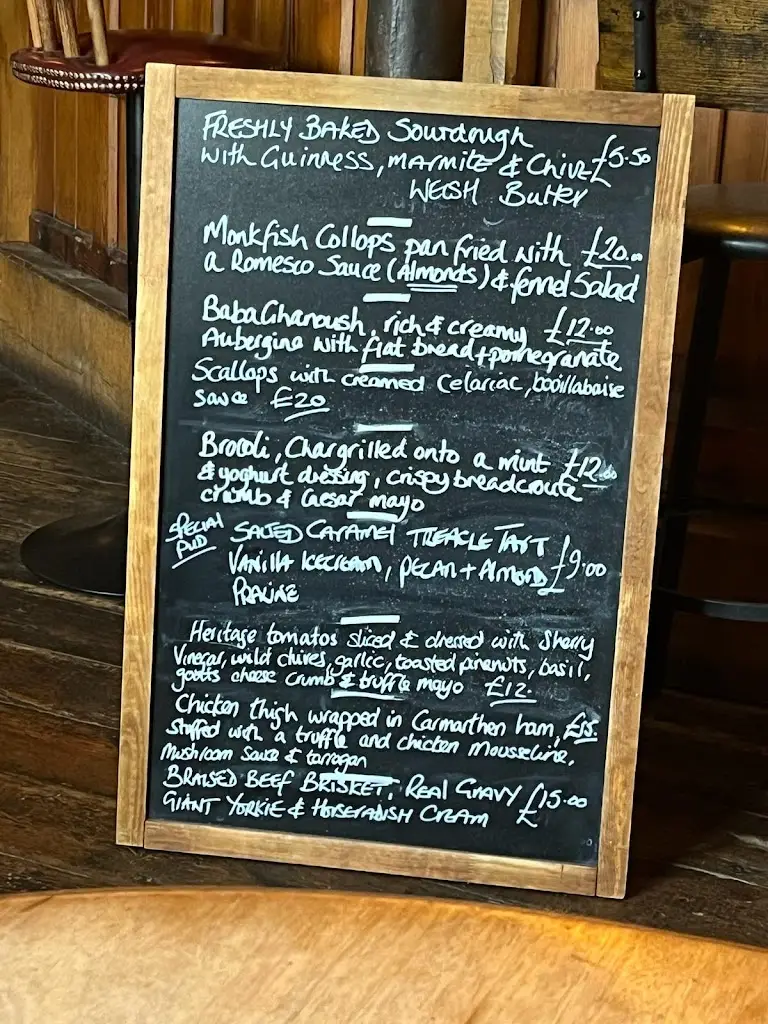 FRESHLY BAKED Sourdough
with Guinness, MARMITE & Chive £5.50
WELSH Butter
Monkfish Collops pan fried with £20.00
a Romesco Sauce (Almonds) & fennel Salad
Baba Ghanoush, rich & creamy £12.00
Aubergine with flat bread + pomegranate
Scallops with creamed Celariac, bouillabaise
Sauce £20
Brocoli, Chargrilled onto a mint £12.00
& yoghurt dressing, crispy breadcroute
crumb & Caesar mayo
SPECIAL PUD
SALTED CARAMEL TREACLE TART
VANILLA ICECREAM, PECAN + ALMOND £9.00
PRALINE
Heritage tomatos sliced & dressed with Sherry
Vinegar, wild chives, garlic, toasted pinenuts, basil,
goats cheese crumb & truffle mayo £12.
Chicken thigh wrapped in Carmarthen ham, £15.
stuffed with a truffle and chicken mousseline,
Mushroom Sauce & tarragan
BRAISED BEEF BRISKET, REAL GRAVY £15.00
GIANT YORKIE & HORSERADISH CREAM